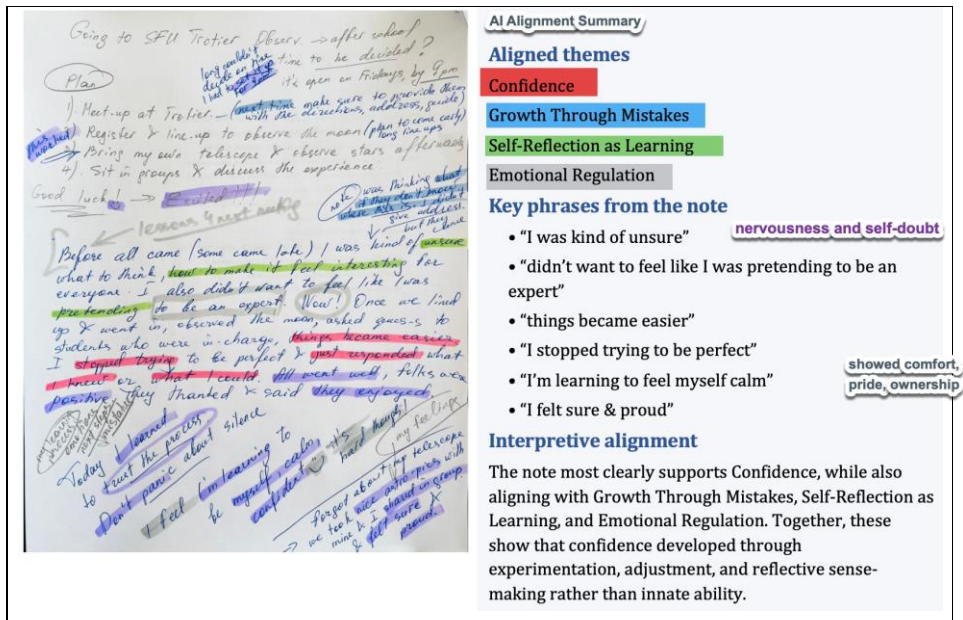 Going to SFU Trotier Observ. → after school
time to be decided?
long couldn't
decide on time
I had to set it up
for 9pm
it's open on Fridays, by 9pm
Plan
1). Meet-up at Trotier. — (next time make sure to provide them
with the directions, address, guide)
this worked
2) Register & line-up to observe the moon (plan to come early)
long line ups
3) Bring my own telescope & observe stars afterwards
4). Sit in groups & discuss the experience.
Good luck! → Exited!!!
note
I was thinking what
if they don't know
where this is. I didn't
give address.
but they came
lessons 4 next meeting
Before all came (some came late) I was kind of unsure
what to think, how to make it feel interesting for
everyone. I also didn't want to feel like I was
pretending to be an expert. Now! Once we lined
up & went in, observed the moon, asked ques-s to
students who were in-charge, things became easier
I stopped trying to be perfect & just responded what
I knew or what I could. All went well, folks were
positive. They thanked & said they enjoyed.
my learning
process:
emotions
next steps
mistakes
Today I learned
to trust the process
Don't panic about silence
I feel I'm learning to
be myself calm,
confident
it's
hard though!
my feelings
Forgot about my telescope
we took nice astro-pics with
mine & I shared in group.
& felt sure &
proud.
AI Alignment Summary
Aligned themes
Confidence
Growth Through Mistakes
Self-Reflection as Learning
Emotional Regulation
Key phrases from the note
nervousness and self-doubt
• “I was kind of unsure”
• “didn’t want to feel like I was pretending to be an
expert”
• “things became easier”
• “I stopped trying to be perfect”
showed comfort,
pride, ownership
• “I’m learning to feel myself calm”
• “I felt sure & proud”
Interpretive alignment
The note most clearly supports Confidence, while also
aligning with Growth Through Mistakes, Self-Reflection as
Learning, and Emotional Regulation. Together, these
show that confidence developed through
experimentation, adjustment, and reflective sense-
making rather than innate ability.